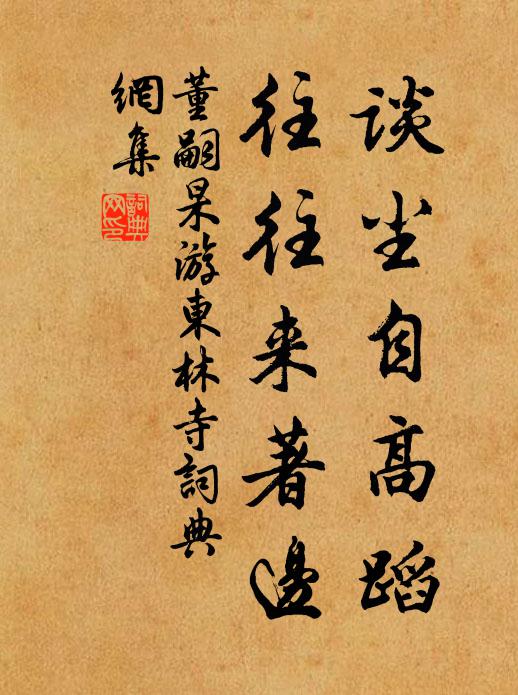 谈坐自高蹈
往往来著邊
董嗣杲游東林寺詞典
網集
詞典网印